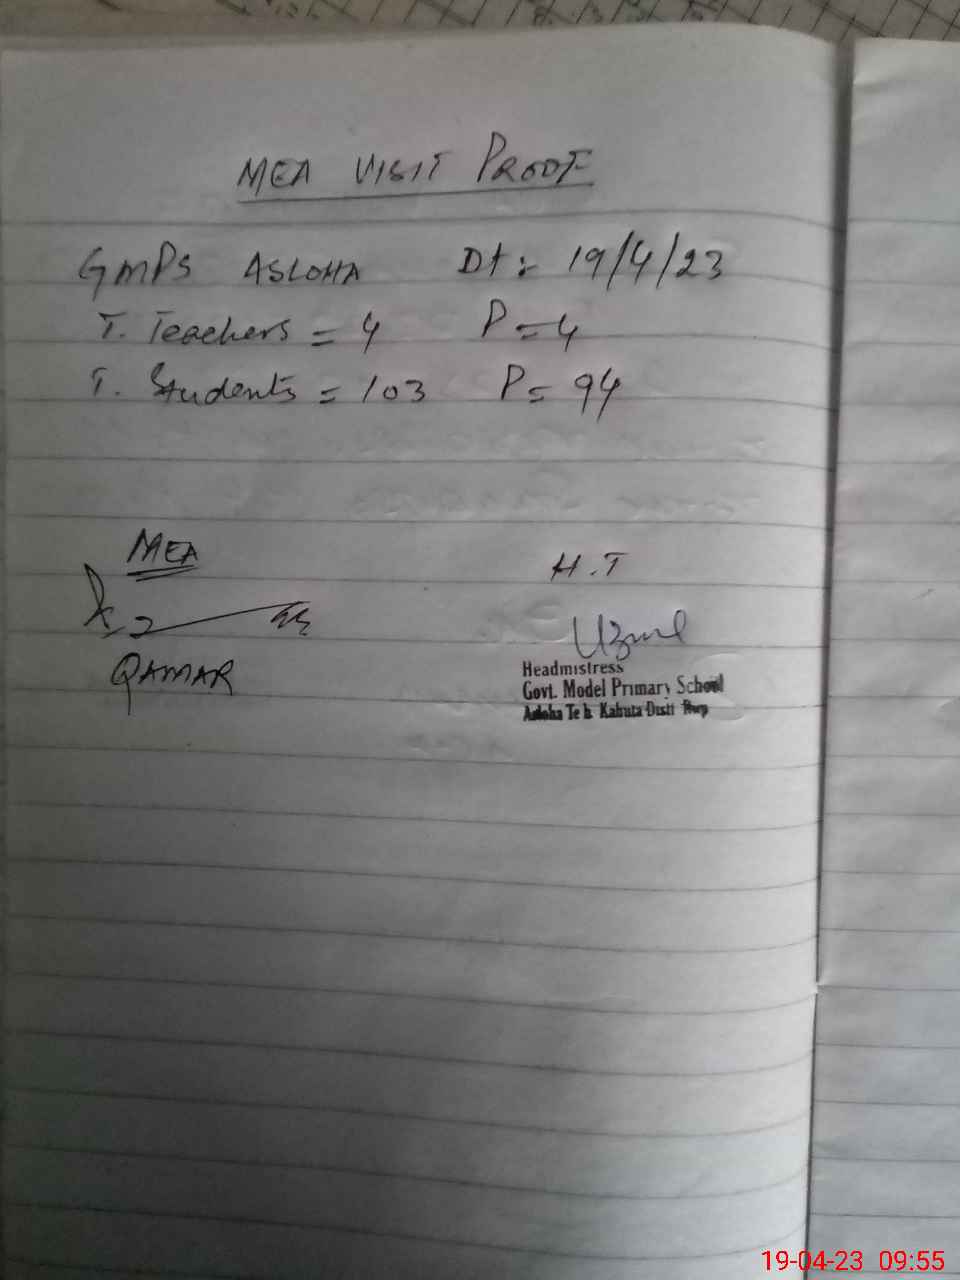 MEA VISIT PROOF
GMPS ASLOHA Dt: 19/4/23
T. Teachers = 4 P = 4
T. Students = 103 P = 94
MEA
H.T
QAMAR
Headmistress
Govt. Model Primary School
Asloha Teh Kahuta Distt Rwp
19-04-23 09:55